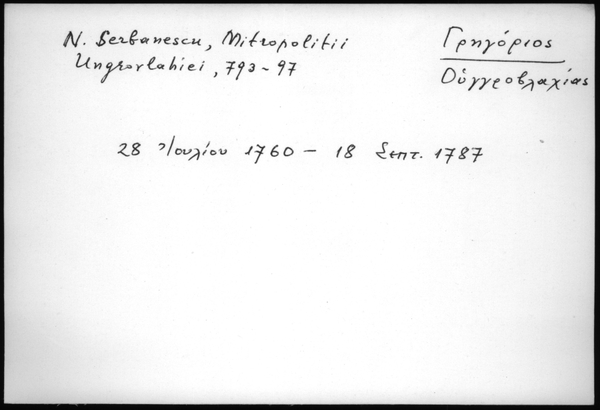 N. Serbanescu, Mitropolitii
Ungrovlahiei, 793-97
Γρηγόριος
Οὑγγροβλαχίας
28 Ἰουλίου 1760 - 18 Σεπτ. 1787